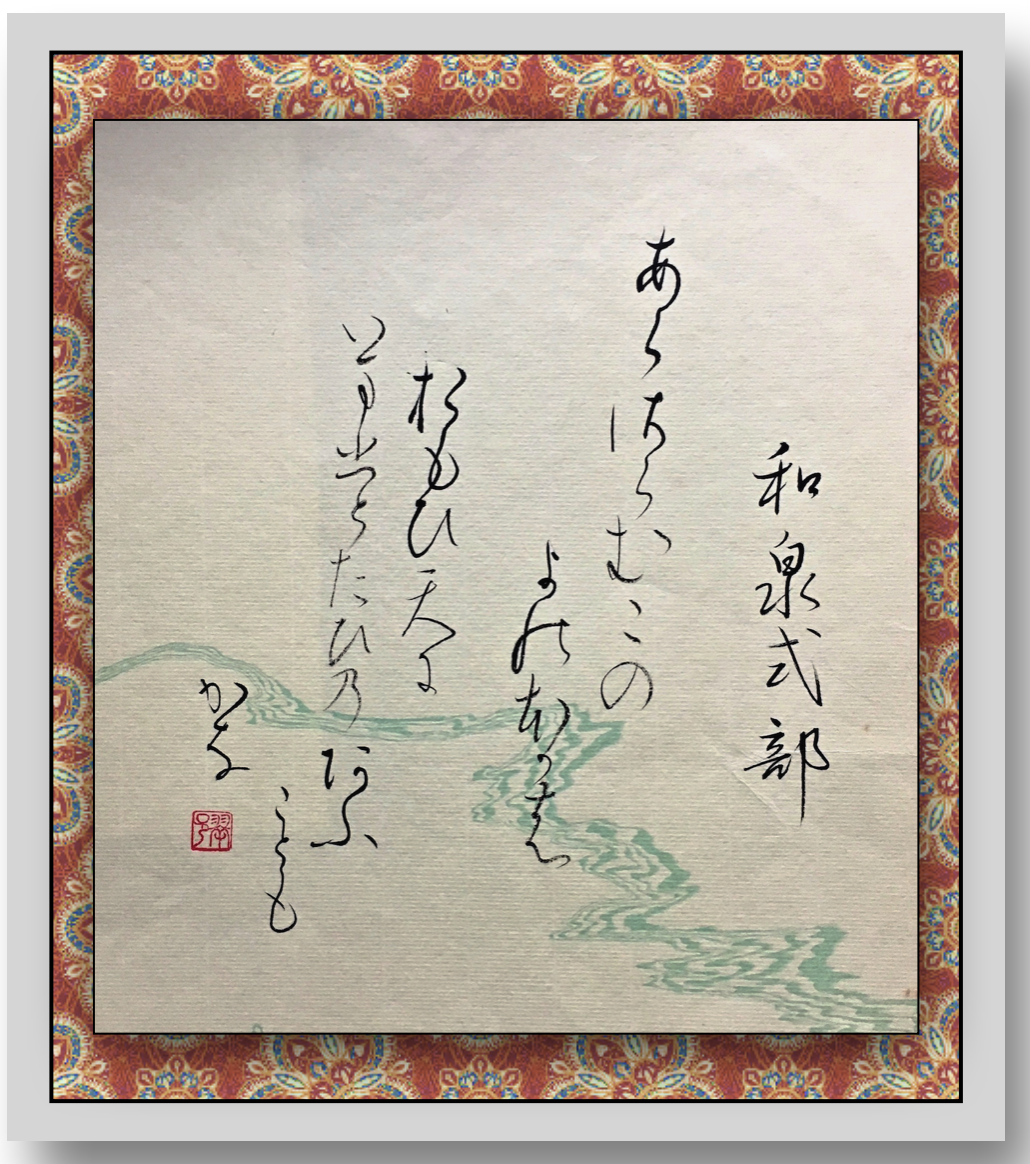 和泉式部
あらさらむこの
よのほかの
おもひ天に
いまひとたひ乃あふ
ことも
かな